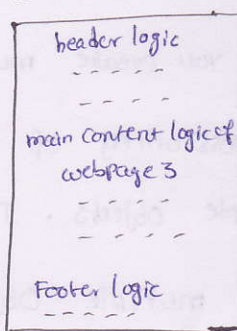 header logic
- - - - -
- - - -
main content logic of
webpage 3
- - - -
- - - -
Footer logic
- - - - -